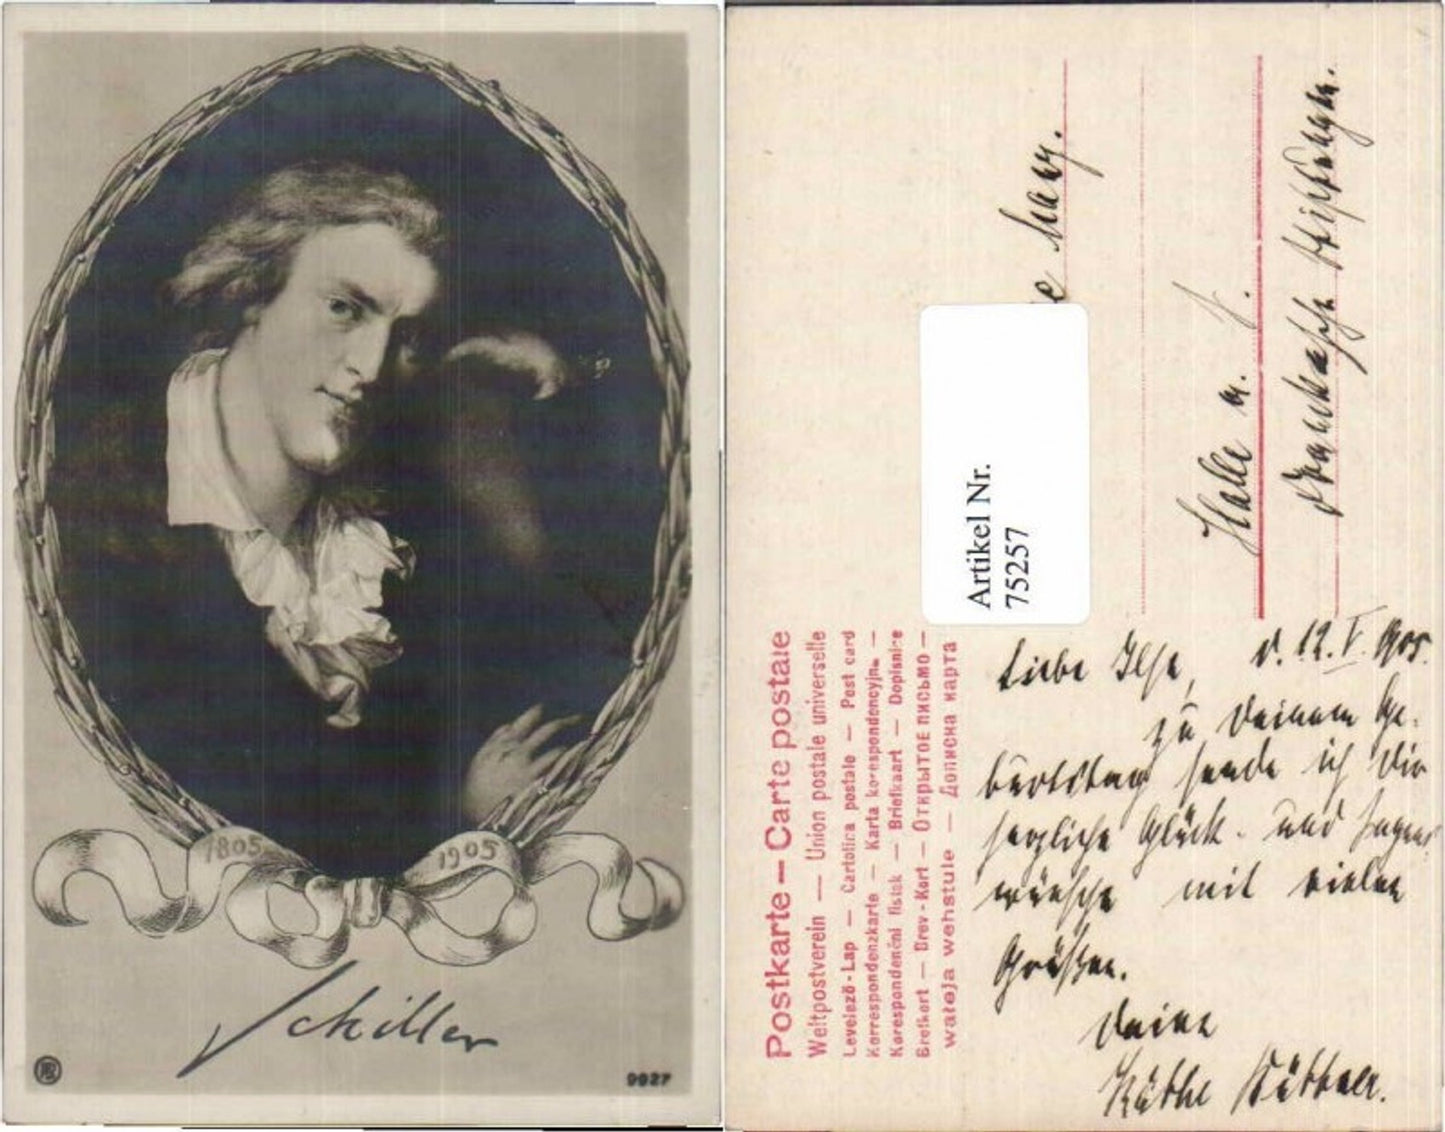 1805 1905
Schiller
9927
Postkarte — Carte postale
Weltpostverein — Union postale universelle
Levelező-Lap — Cartolina postale — Post card
Korrespondenzkarte — Karta korespondencyjna —
Korespondenční lístek — Briefkaart — Dopisnice
Brefkort — Brev-Kort — Открытое письмо —
wateja wehstule — Дописна карта
Artikel Nr.
75257
Halle a. S.
Liebe Ilse, d. 12. V. 1905.
zu Deinem Ge-
burtstag sende ich Dir
herzliche Glück- und Segens-
wünsche mit vielen
Grüßen.
Deine
Käthe